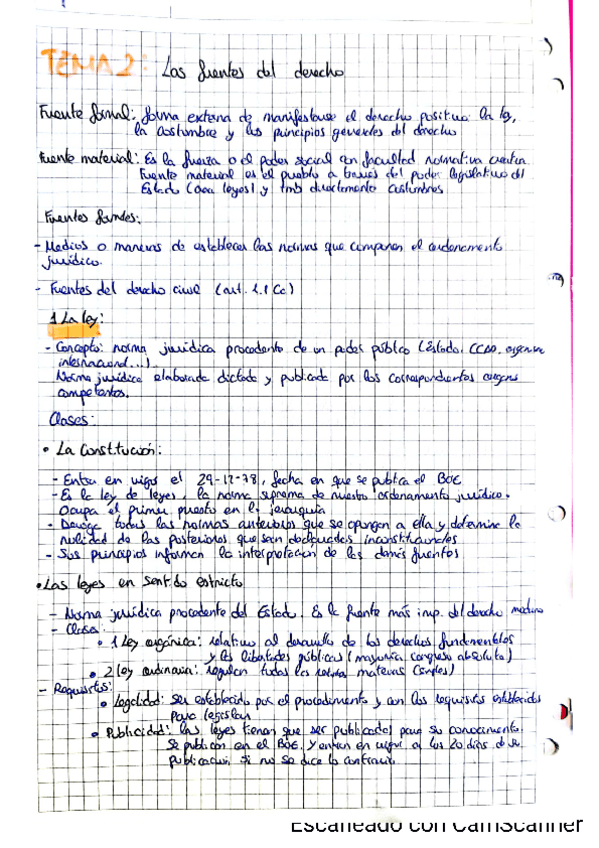 TEMA 2: Las fuentes del derecho
Fuente formal: forma externa de manifestarse el derecho positivo: la ley,
la costumbre y los principios generales del derecho
Fuente material: Es la fuerza o el poder social con facultad normativa creativa.
Fuente material es el pueblo a través del poder legislativo del
Estado (crea leyes) y tmb directamente costumbres
Fuentes formales:
- Medios o maneras de establecer las normas que componen el ordenamiento
jurídico.
- Fuentes del derecho civil (art. 1.1 Cc)
1 La ley:
- Concepto: norma jurídica procedente de un poder público (Estado, CCAA, organismo
internacional...).
Norma jurídica elaborada dictada y publicada por los correspondientes órganos
competentes.
Clases:
• La Constitución:
- Entra en vigor el 29-12-78, fecha en que se publica el BOE
- Es la ley de leyes, la norma suprema de nuestro ordenamiento jurídico.
Ocupa el primer puesto en la jerarquía
- Deroga todas las normas anteriores que se opongan a ella y determina la
nulidad de las posteriores que sean declaradas inconstitucionales
- Sus principios informan la interpretación de las demás fuentes
• Las leyes en sentido estricto
- Norma jurídica procedente del Estado. Es la fuente más imp. del derecho moderno
- Clases:
• 1 Ley orgánica: relativa al desarrollo de los derechos fundamentales
y las libertades públicas (mayoría congreso absoluta)
• 2 Ley ordinaria: regulan todas las materias (simples)
- Requisitos:
• Legalidad: ser establecido por el procedimiento y con los requisitos establecidos
para legislar
• Publicidad: las leyes tienen que ser publicadas para su conocimiento.
Se publican en el BOE y entran en vigor a los 20 días de su
publicación si no se dice lo contrario
Escaneado con CamScanner